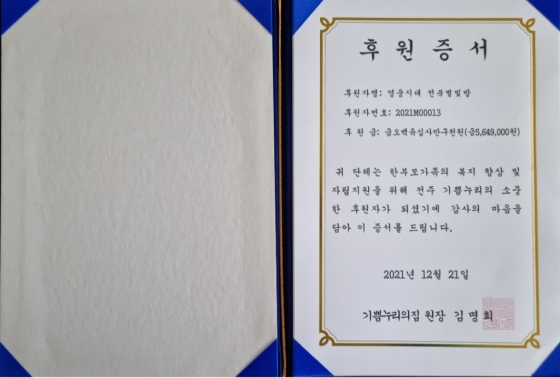 후 원 증 서
후원자명: 영웅시대 전북별빛방
후원자번호: 2021M00013
후 원 금: 금오백육십사만구천원(금5,649,000원)
귀 단체는 한부모가족의 복지 향상 및
자립지원을 위해 전주 기쁨누리의 소중
한 후원자가 되셨기에 감사의 마음을
담아 이 증서를 드립니다.
2021년 12월 21일
기쁨누리의집 원장 김 명 희